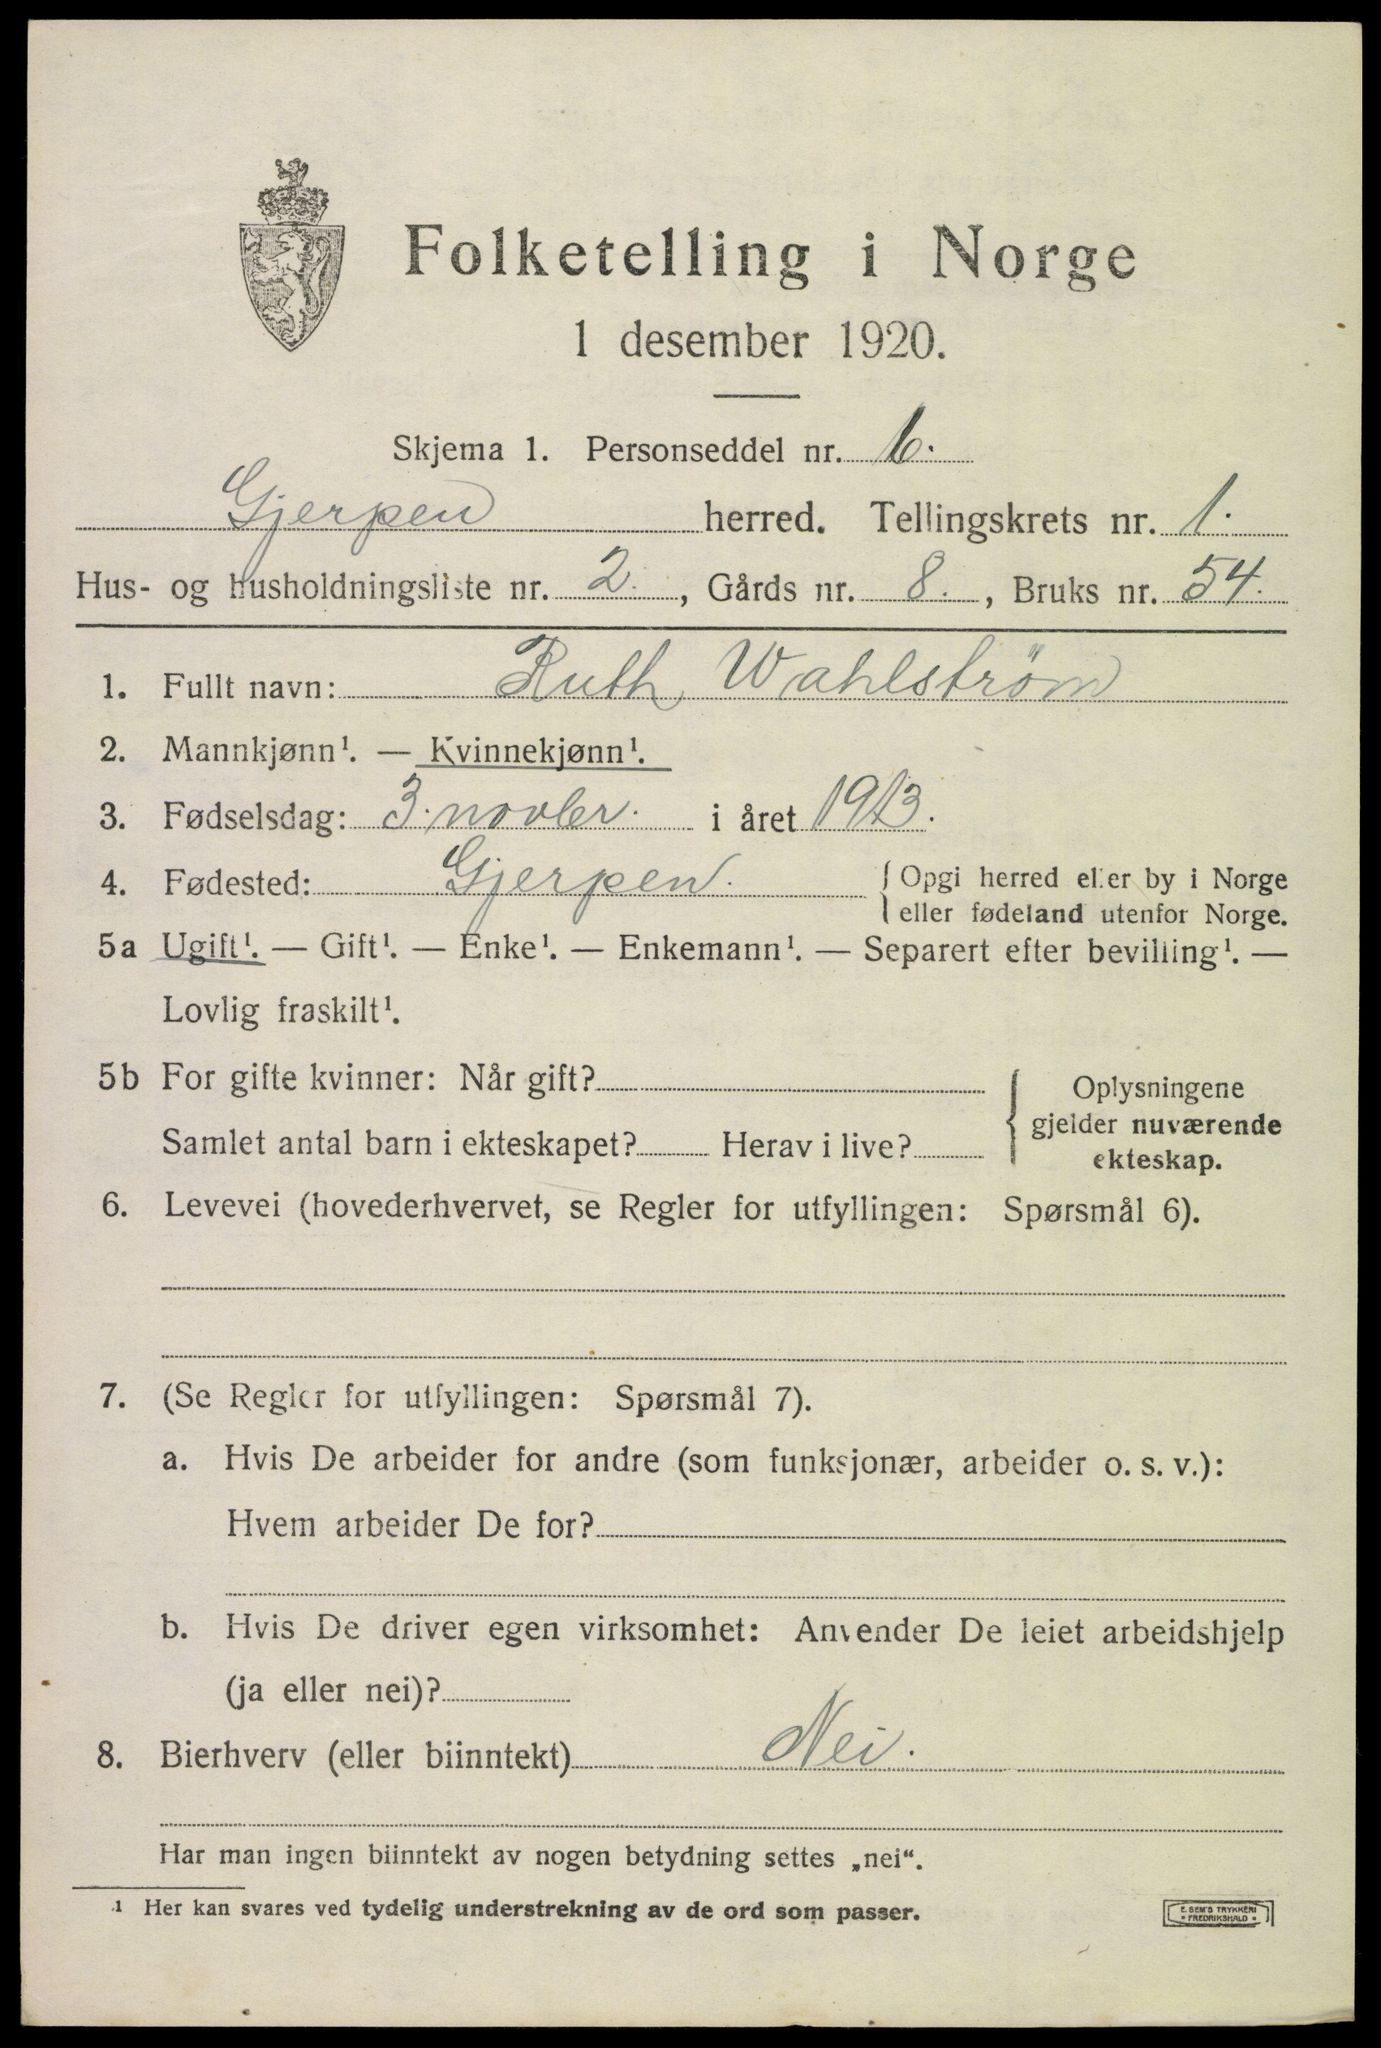 Folketelling i Norge
1 desember 1920.
Skjema 1. Personseddel nr. 6.
Gjerpen herred. Tellingskrets nr. 1.
Hus- og husholdningsliste nr. 2., Gårds nr. 8., Bruks nr. 54.
1. Fullt navn: Ruth Wahlstrøm
2. Mannkjønn¹. — Kvinnekjønn¹.
3. Fødselsdag: 3. novber. i året 1913.
4. Fødested: Gjerpen. { Opgi herred eller by i Norge
eller fødeland utenfor Norge.
5a Ugift¹. — Gift¹. — Enke¹. — Enkemann¹. — Separert efter bevilling¹. —
Lovlig fraskilt¹.
5b For gifte kvinner: Når gift?
Samlet antal barn i ekteskapet? Herav i live?
{ Oplysningene
gjelder nuværende
ekteskap.
6. Levevei (hovederhvervet, se Regler for utfyllingen: Spørsmål 6).
7. (Se Regler for utfyllingen: Spørsmål 7).
a. Hvis De arbeider for andre (som funksjonær, arbeider o. s. v.):
Hvem arbeider De for?
b. Hvis De driver egen virksomhet: Anvender De leiet arbeidshjelp
(ja eller nei)?
8. Bierhverv (eller biinntekt) Nei.
Har man ingen biinntekt av nogen betydning settes „nei“.
¹ Her kan svares ved tydelig understrekning av de ord som passer.
E. SEM'S TRYKKERI
• FREDRIKSHALD •